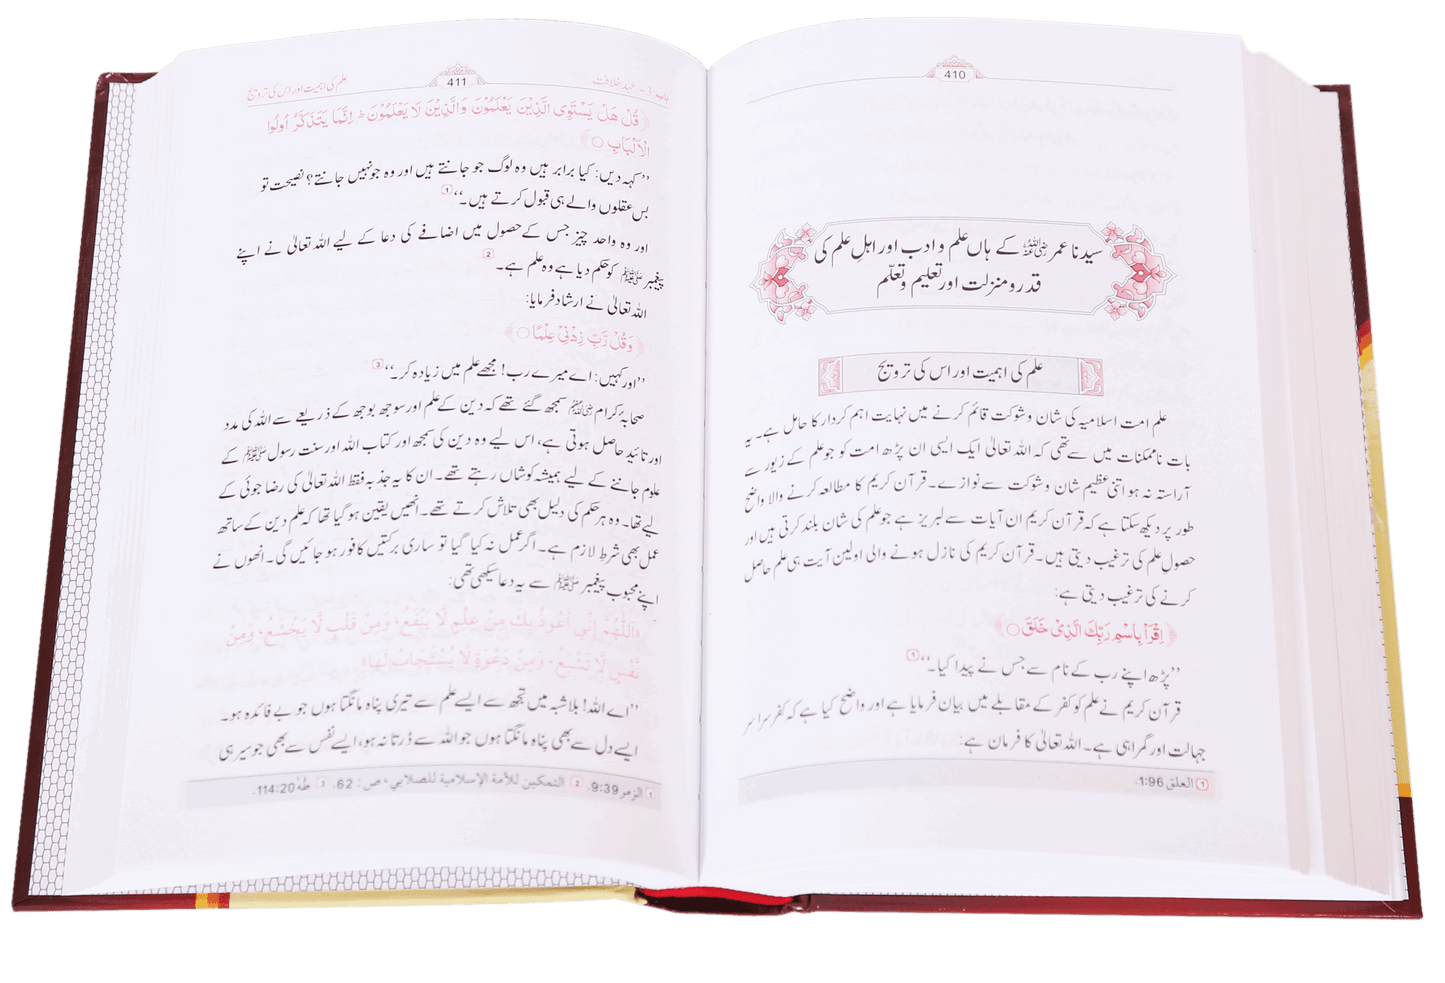 410
سیدنا عمر رضی اللہ عنہ کے ہاں علم و ادب اور اہلِ علم کی
قدر و منزلت اور تعلیم و تعلّم
علم کی اہمیت اور اس کی ترویج
علم امت اسلامیہ کی شان و شوکت قائم کرنے میں نہایت اہم کردار کا حامل ہے۔ یہ
بات ناممکنات میں سے تھی کہ اللہ تعالیٰ ایک ایسی ان پڑھ امت کو جو علم کے زیور سے
آراستہ نہ ہو اتنی عظیم شان و شوکت سے نوازے۔ قرآن کریم کا مطالعہ کرنے والا واضح
طور پر دیکھ سکتا ہے کہ قرآن کریم ان آیات سے لبریز ہے جو علم کی شان بلند کرتی ہیں اور
حصولِ علم کی ترغیب دیتی ہیں۔ قرآن کریم کی نازل ہونے والی اولین آیت ہی علم حاصل
کرنے کی ترغیب دیتی ہے:
﴿اِقْرَاْ بِاسْمِ رَبِّكَ الَّذِیْ خَلَقَ ○﴾
’’پڑھ اپنے رب کے نام سے جس نے پیدا کیا۔‘‘ 1
قرآن کریم نے علم کو کفر کے مقابلے میں بیان فرمایا ہے اور واضح کیا ہے کہ کفر سراسر
جہالت اور گمراہی ہے۔ اللہ تعالیٰ کا فرمان ہے:
1 العلق 1:96.
باب:3 - عہد خلافت 411 علم کی اہمیت اور اس کی ترویج
﴿قُلْ هَلْ یَسْتَوِی الَّذِیْنَ یَعْلَمُوْنَ وَالَّذِیْنَ لَا یَعْلَمُوْنَ ؕ اِنَّمَا یَتَذَكَّرُ اُولُوا
الْاَلْبَابِ ○﴾
’’کہہ دیں: کیا برابر ہیں وہ لوگ جو جانتے ہیں اور وہ جو نہیں جانتے؟ نصیحت تو
بس عقلوں والے ہی قبول کرتے ہیں۔‘‘ 1
اور وہ واحد چیز جس کے حصول میں اضافے کی دعا کے لیے اللہ تعالیٰ نے اپنے
پیغمبر ﷺ کو حکم دیا ہے وہ علم ہے۔ 2
اللہ تعالیٰ نے ارشاد فرمایا:
﴿وَقُلْ رَّبِّ زِدْنِیْ عِلْمًا ○﴾
’’اور کہیں: اے میرے رب! مجھے علم میں زیادہ کر۔‘‘ 3
صحابۂ کرام رضی اللہ عنہم سمجھ گئے تھے کہ دین کے علم اور سوجھ بوجھ کے ذریعے سے اللہ کی مدد
اور تائید حاصل ہوتی ہے، اس لیے وہ دین کی سمجھ اور کتاب اللہ اور سنت رسول ﷺ کے
علوم جاننے کے لیے ہمیشہ کوشاں رہتے تھے۔ ان کا یہ جذبہ فقط اللہ تعالیٰ کی رضا جوئی کے
لیے تھا۔ وہ ہر حکم کی دلیل بھی تلاش کرتے تھے۔ انھیں یقین ہو گیا تھا کہ علم دین کے ساتھ
عمل بھی شرط لازم ہے۔ اگر عمل نہ کیا گیا تو ساری برکتیں کافور ہو جائیں گی۔ انھوں نے
اپنے محبوب پیغمبر ﷺ سے یہ دعا سیکھی تھی:
«اَللّٰهُمَّ إِنِّي أَعُوذُ بِكَ مِنْ عِلْمٍ لَّا يَنْفَعُ، وَمِنْ قَلْبٍ لَّا يَخْشَعُ، وَمِنْ
نَّفْسٍ لَّا تَشْبَعُ، وَمِنْ دَعْوَةٍ لَّا يُسْتَجَابُ لَهَا»
’’اے اللہ! بلاشبہ میں تجھ سے ایسے علم سے تیری پناہ مانگتا ہوں جو بے فائدہ ہو۔
ایسے دل سے بھی پناہ مانگتا ہوں جو اللہ سے ڈرتا نہ ہو، ایسے نفس سے بھی جو سیر ہی
1 الزمر 9:39. 2 التمكين للأمة الإسلامية للصلابي، ص: 62. 3 طٰهٰ 114:20.